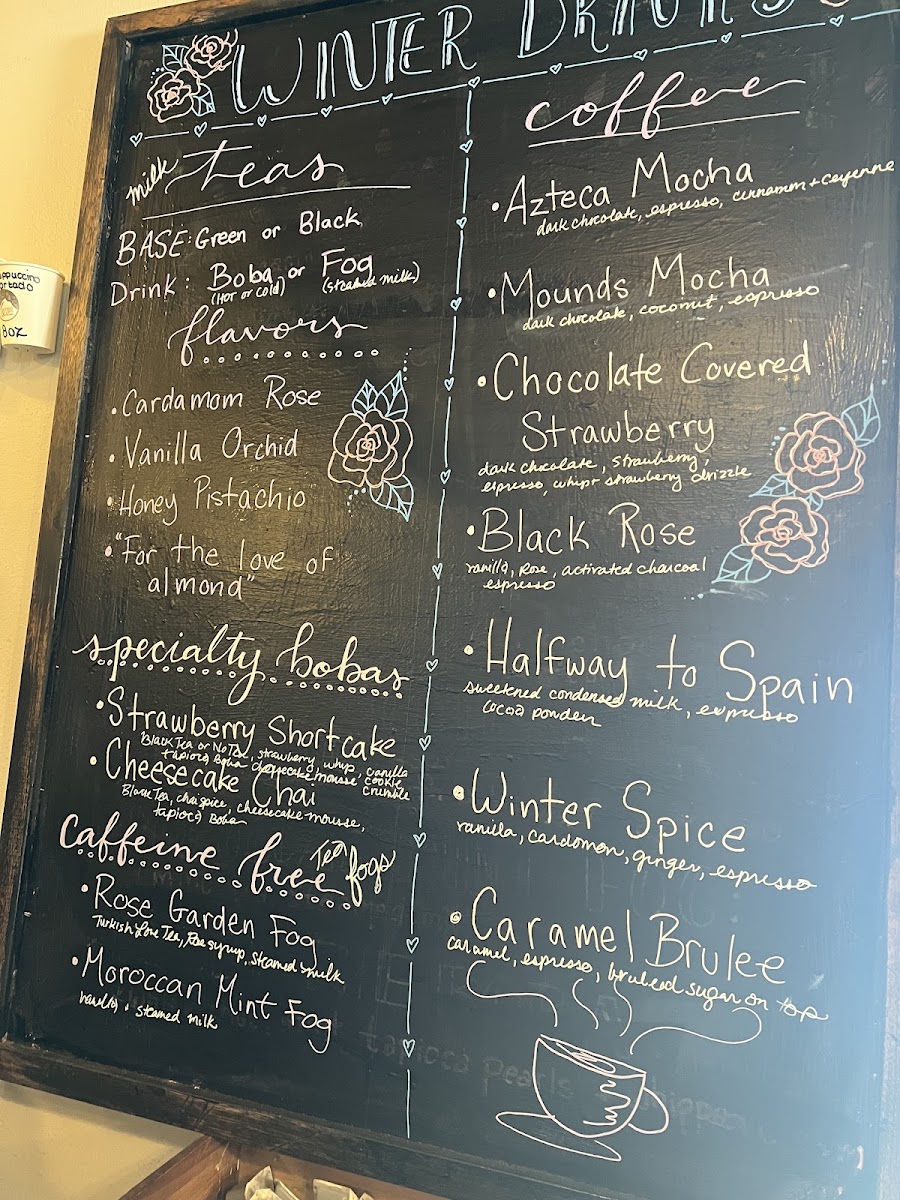 WINTER DRINKS
milk teas
BASE: Green or Black
Drink: Boba or Fog
(HOT or COLD) (steamed milk)
flavors
• Cardamom Rose
• Vanilla Orchid
• Honey Pistachio
• "For the love of
almond"
specialty bobas
• Strawberry Shortcake
Black Tea or No Tea, strawberry, whip, vanilla
tapioca Boba cheesecake mousse cookie
crumble
• Cheesecake Chai
Black Tea, chai spice, cheesecake mousse,
tapioca Boba
caffeine free Tea fogs
• Rose Garden Fog
Turkish Love Tea, Rose syrup, steamed milk
• Moroccan Mint Fog
vanilla + steamed milk
coffee
• Azteca Mocha
dark chocolate, espresso, cinnamon + cayenne
• Mounds Mocha
dark chocolate, coconut, espresso
• Chocolate Covered
Strawberry
dark chocolate, strawberry,
espresso, whip + strawberry drizzle
• Black Rose
vanilla, Rose, activated charcoal
espresso
• Halfway to Spain
sweetened condensed milk, espresso
cocoa powder
• Winter Spice
vanilla, cardomon, ginger, espresso
• Caramel Brulee
caramel, espresso, bruleed sugar on top
tapioca pearls
8oz